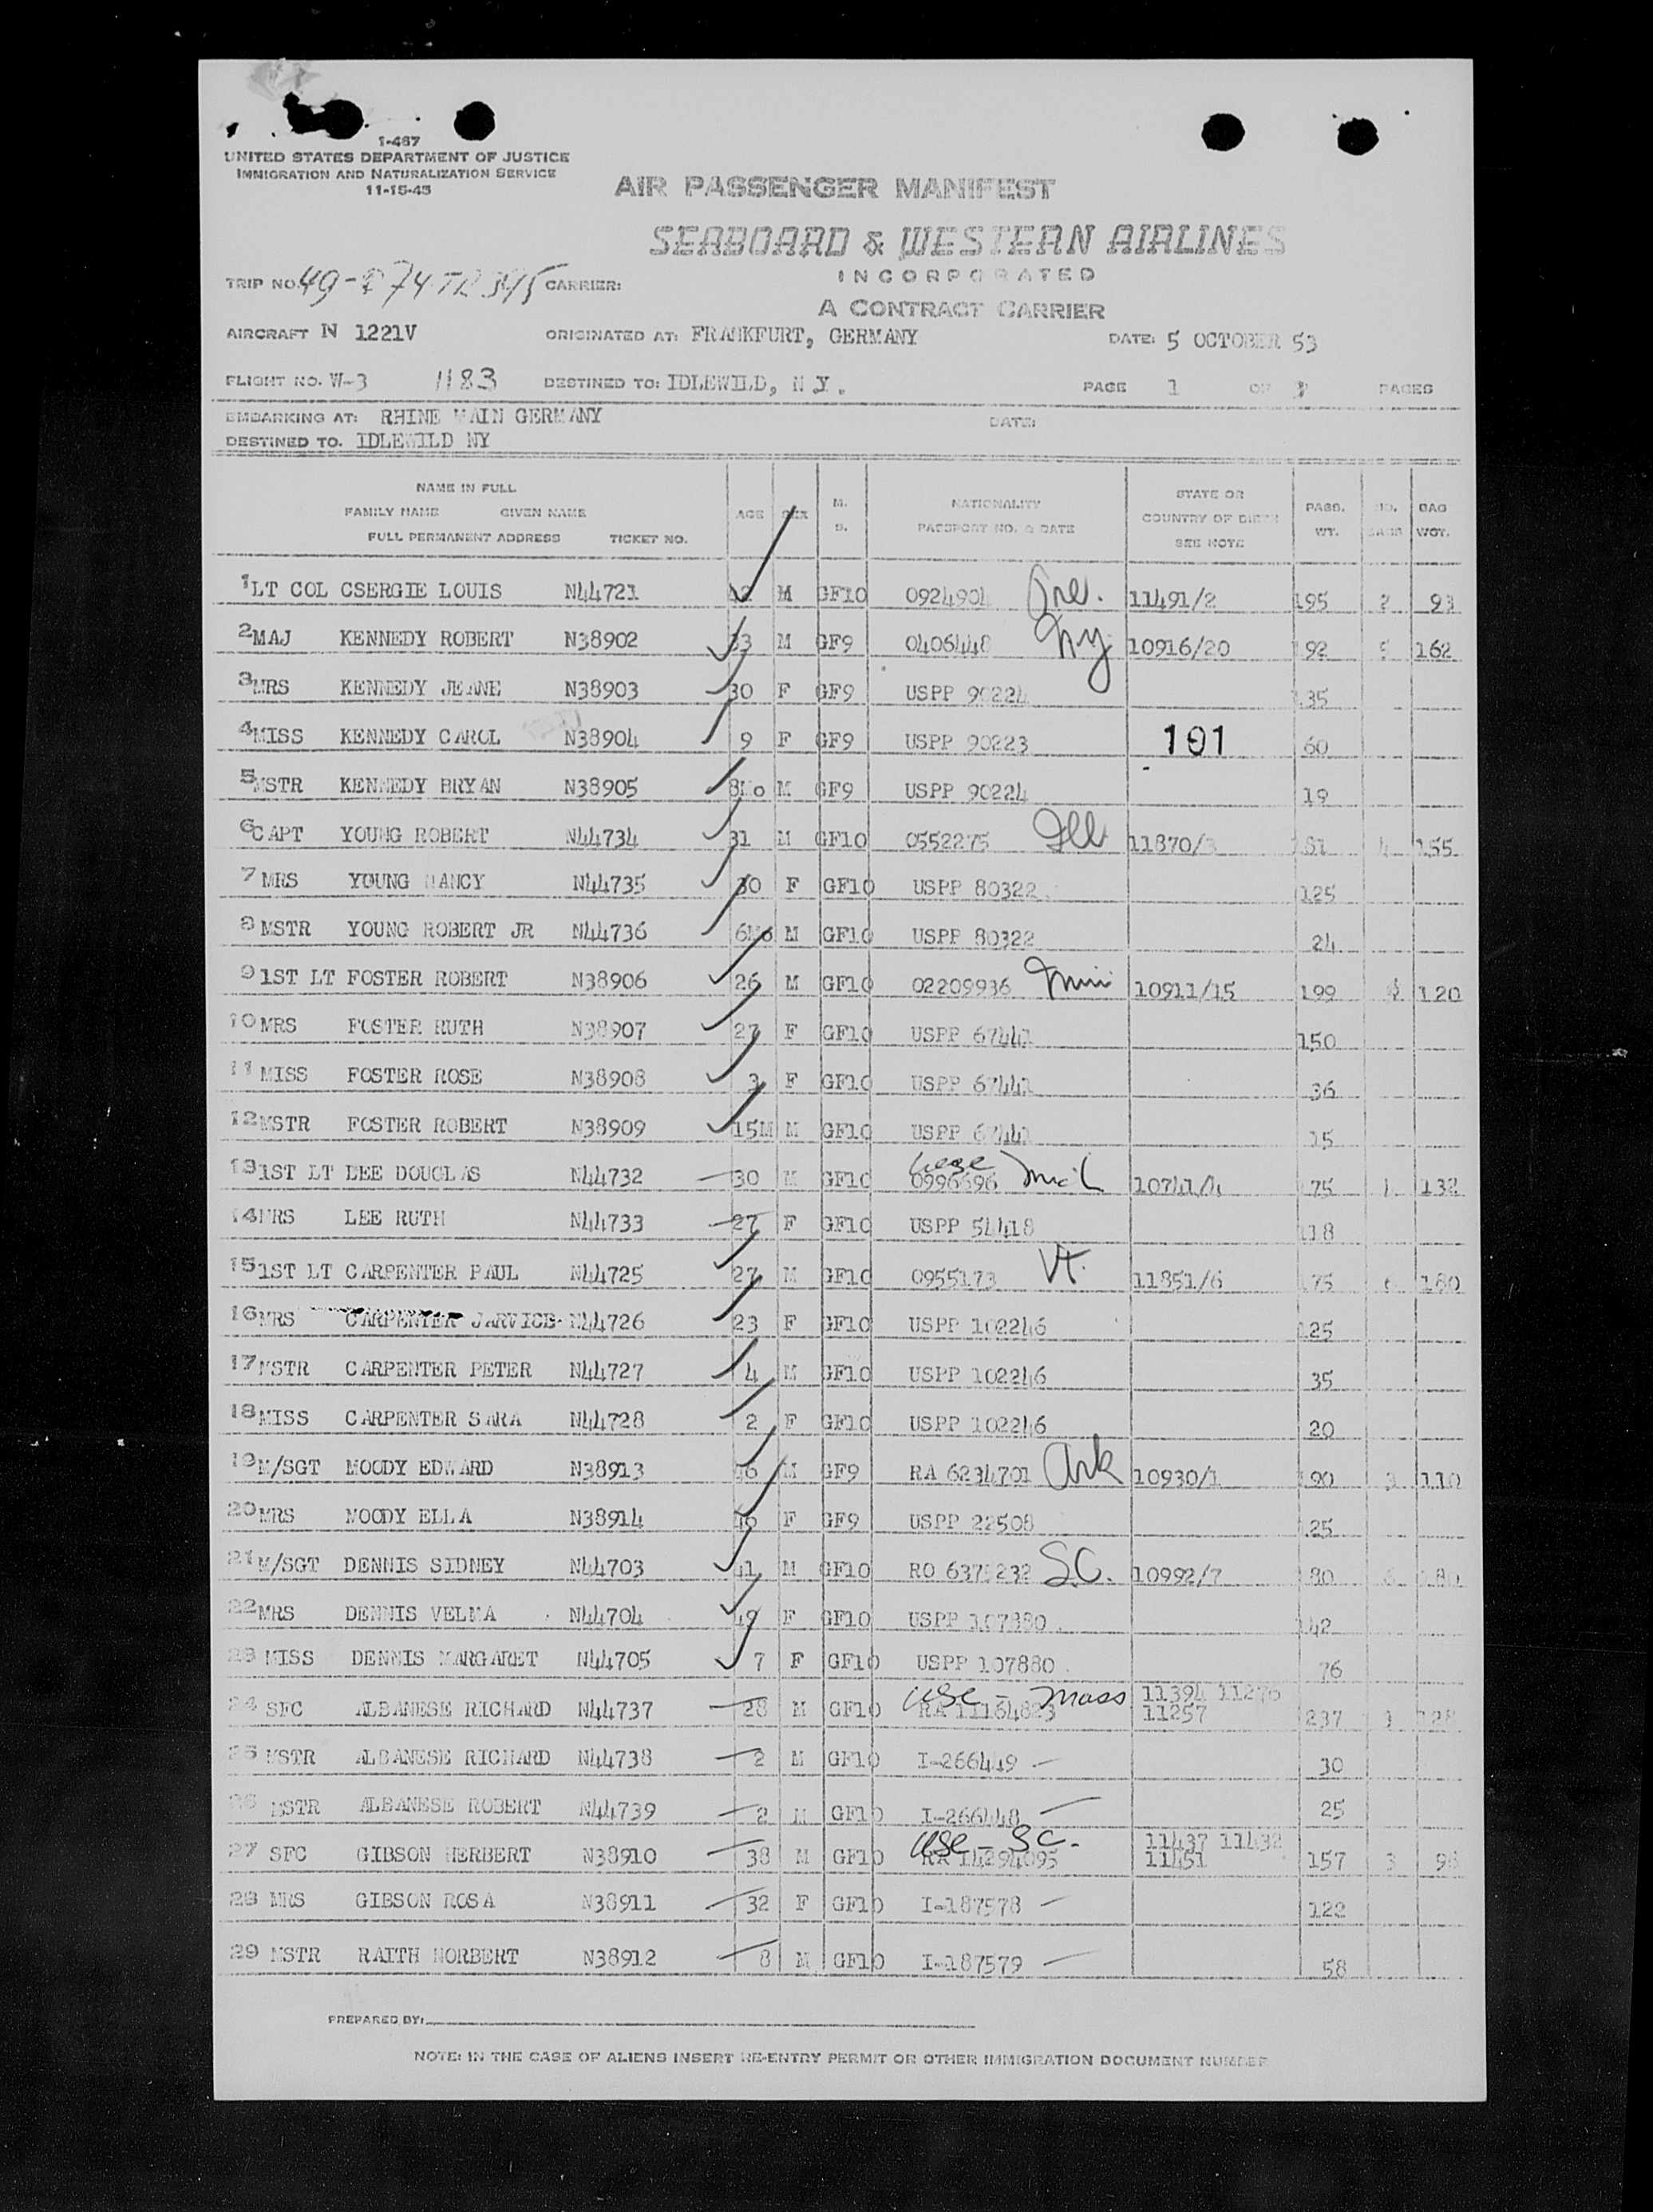 1-467
UNITED STATES DEPARTMENT OF JUSTICE
IMMIGRATION AND NATURALIZATION SERVICE
11-15-45
AIR PASSENGER MANIFEST
SEABOARD & WESTERN AIRLINES
INCORPORATED
A CONTRACT CARRIER
TRIP NO. CARRIER:
AIRCRAFT N 1221V ORIGINATED AT: FRANKFURT, GERMANY DATE: 5 OCTOBER 53
FLIGHT NO. W-3 1183 DESTINED TO: IDLEWILD, N Y. PAGE 1 OF PAGES
EMBARKING AT: RHINE MAIN GERMANY DATE:
DESTINED TO. IDLEWILD NY
NAME IN FULL
FAMILY NAME GIVEN NAME
FULL PERMANENT ADDRESS TICKET NO.
AGE SEX M. S. NATIONALITY PASSPORT NO. & DATE STATE OR COUNTRY OF BIRTH SEE NOTE PASS. WT. NO. BAGS BAG WGT.
1 LT COL CSERGIE LOUIS N44721 M GF10 0924904 11491/2 195 2 93
2 MAJ KENNEDY ROBERT N38902 33 M GF9 0406448 NY 10916/20 192 162
3 MRS KENNEDY JEANE N38903 30 F GF9 USPP 90224 135
4 MISS KENNEDY CAROL N38904 9 F GF9 USPP 90223 101 60
5 MSTR KENNEDY BRYAN N38905 8Mo M GF9 USPP 90224 19
6 CAPT YOUNG ROBERT N44734 31 M GF10 0552275 Ill 11870/3 161 4 155
7 MRS YOUNG NANCY N44735 30 F GF10 USPP 80322 125
8 MSTR YOUNG ROBERT JR N44736 6Mo M GF10 USPP 80322 24
9 1ST LT FOSTER ROBERT N38906 26 M GF10 02209936 10911/15 199 120
10 MRS FOSTER RUTH N38907 27 F GF10 USPP 67441 150
11 MISS FOSTER ROSE N38908 3 F GF10 USPP 67441 36
12 MSTR FOSTER ROBERT N38909 15M M GF10 USPP 67441 15
13 1ST LT LEE DOUGLAS N44732 30 M GF10 0996696 Mich 10741/4 175 132
14 MRS LEE RUTH N44733 27 F GF10 USPP 54418 118
15 1ST LT CARPENTER PAUL N44725 27 M GF10 0955173 Vt. 11851/6 175 6 180
16 MRS CARPENTER JARVICE N44726 23 F GF10 USPP 102246 125
17 MSTR CARPENTER PETER N44727 4 M GF10 USPP 102246 35
18 MISS CARPENTER SARA N44728 2 F GF10 USPP 102246 20
19 M/SGT MOODY EDWARD N38913 M GF9 RA 6234701 Ark 10930/1 190 3 110
20 MRS MOODY ELLA N38914 F GF9 USPP 22508 125
21 M/SGT DENNIS SIDNEY N44703 41 M GF10 RO S.C. 10992/7 180
22 MRS DENNIS VELMA N44704 49 F GF10 USPP 107880 142
23 MISS DENNIS MARGARET N44705 7 F GF10 USPP 107880 76
24 SFC ALBANESE RICHARD N44737 28 M GF10 USC - Mass RA 11164823 11394 11276 11257 237 3
25 MSTR ALBANESE RICHARD N44738 2 M GF10 I-266449 30
26 MSTR ALBANESE ROBERT N44739 2 M GF10 I-266448 25
27 SFC GIBSON HERBERT N38910 38 M GF10 USC - S.C. RA 14294095 11437 11432 11451 157 3
28 MRS GIBSON ROSA N38911 32 F GF10 I-187578 122
29 MSTR RAITH NORBERT N38912 8 M GF10 I-187579 58
PREPARED BY:
NOTE: IN THE CASE OF ALIENS INSERT RE-ENTRY PERMIT OR OTHER IMMIGRATION DOCUMENT NUMBER